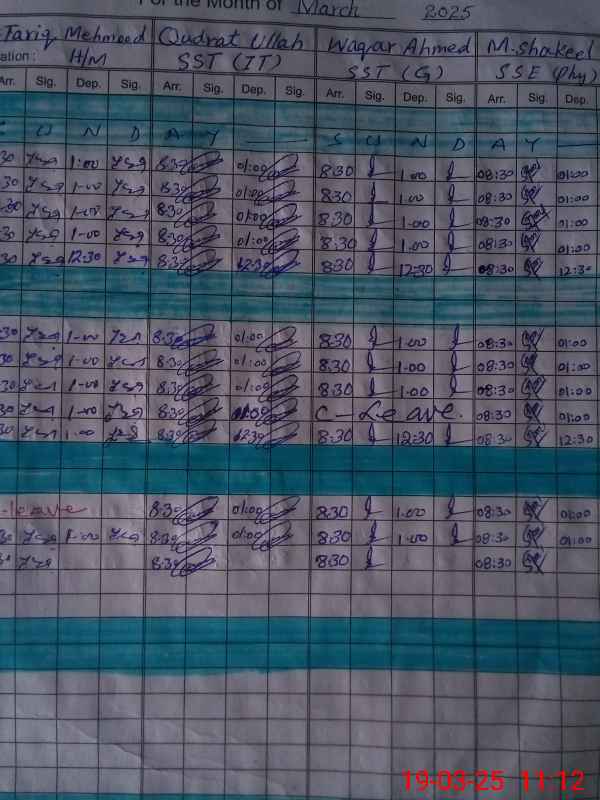 For the Month of March 2025
Tariq Mehmood Qudrat Ullah Waqar Ahmed M.Shakeel
ation: H/M SST (IT) SST (G) SSE (Phy)
Arr. Sig. Dep. Sig. Arr. Sig. Dep. Sig. Arr. Sig. Dep. Sig. Arr. Sig. Dep.
S U N D A Y S U N D A Y
30 1-00 8:30 01:00 8:30 1.00 08:30 01:00
30 1-00 8:30 01:00 8:30 1.00 08:30 01:00
30 1-00 8:30 01:00 8:30 1.00 08:30 01:00
30 1-00 8:30 01:00 8:30 1.00 08:30 01:00
30 12:30 8:30 12:30 8:30 12:30 08:30 12:30
30 1-00 8:30 01:00 8:30 1.00 08:30 01:00
30 1-00 8:30 01:00 8:30 1.00 08:30 01:00
30 1-00 8:30 01:00 8:30 1.00 08:30 01:00
30 1-00 8:30 01:00 C-Leave. 08:30 01:00
30 1.00 8:30 12:30 8:30 12:30 08:30 12:30
-leave 8:30 01:00 8:30 1.00 08:30 01:00
30 1-00 8:30 01:00 8:30 1.00 08:30 01:00
8:30 8:30 08:30
19-03-25 11:12